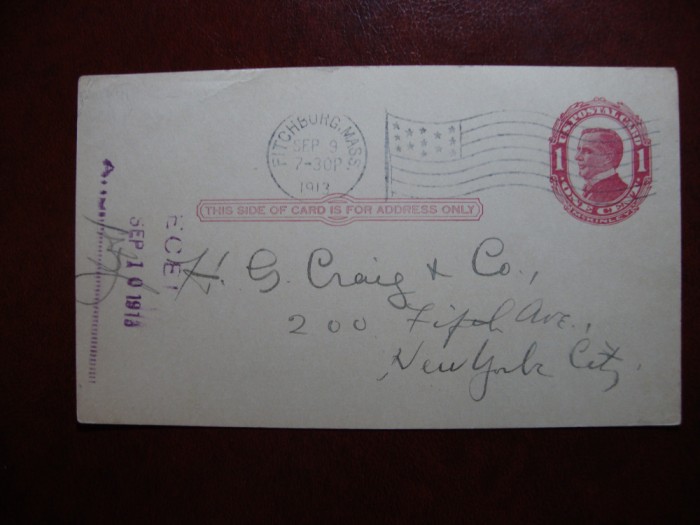 FITCHBURG, MASS.
SEP 9
7-30P
1913
U.S. POSTAL CARD
1 1
ONE CENT
McKINLEY
THIS SIDE OF CARD IS FOR ADDRESS ONLY
H. G. Craig & Co.,
200 Fifth Ave.,
New York City.
ECEI
SEP 10 1913